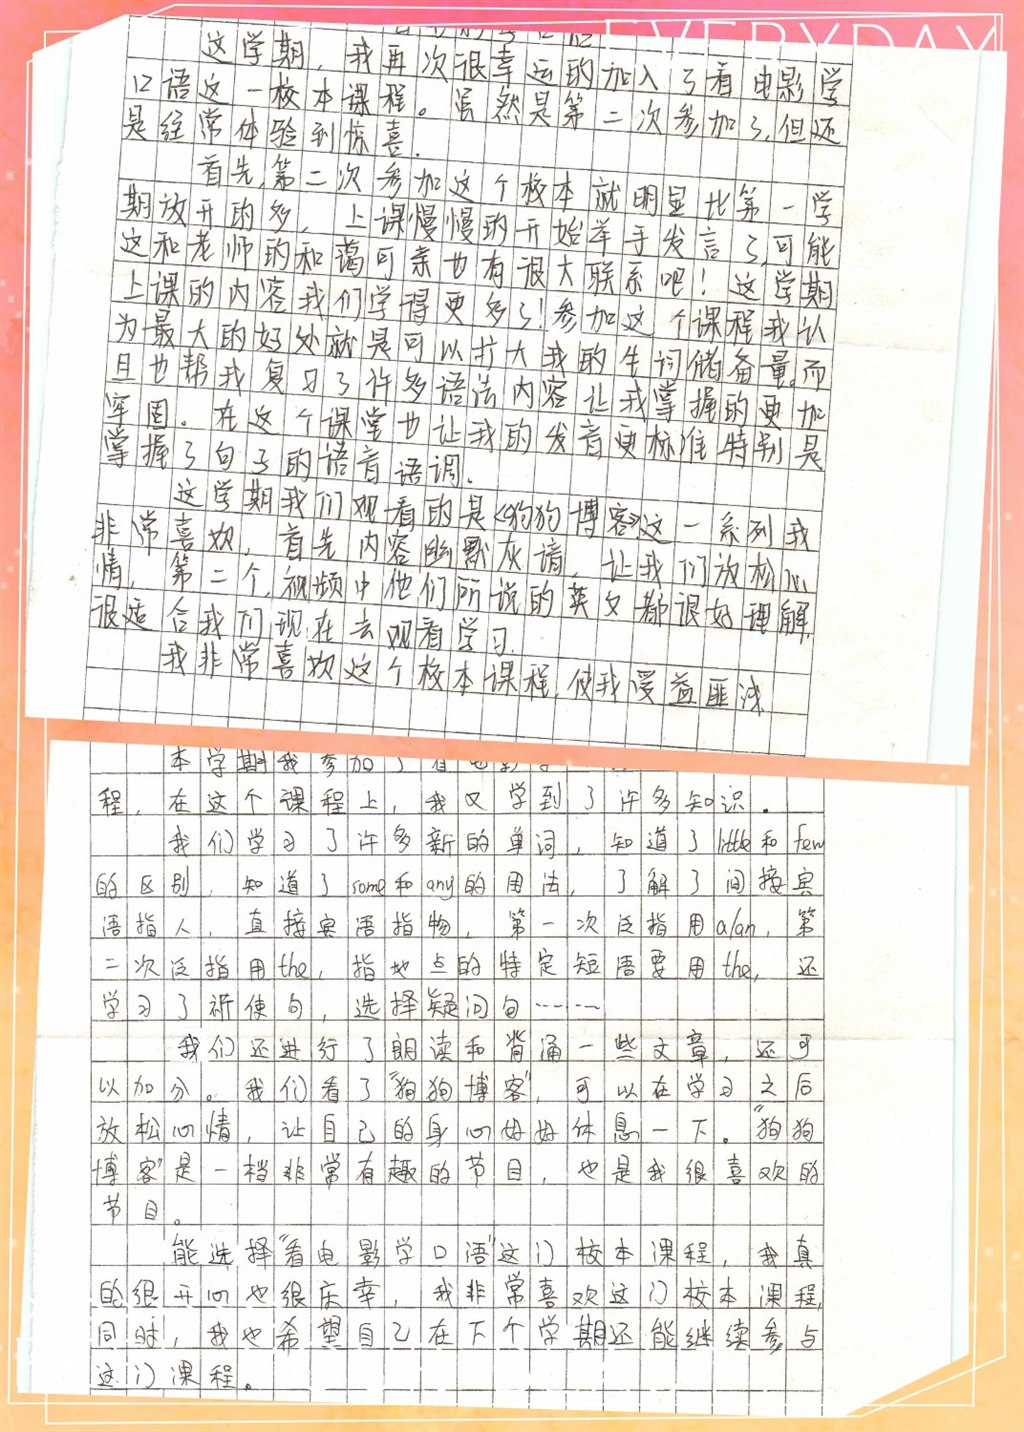 EVERYDAY
这学期，我再次很幸运的加入了看电影学
口语这一校本课程。虽然是第二次参加了，但还
是经常体验到惊喜.
首先,第二次参加这个校本就明显比第一学
期放开的多，上课慢慢的开始举手发言了,可能
这和老师的和蔼可亲也有很大联系吧！这学期
上课的内容我们学得更多了!参加这个课程我认
为最大的好处就是可以扩大我的生词储备量,而
且也帮我复习了许多语法内容让我掌握的更加
牢固。在这个课堂也让我的发音更标准特别是
掌握了句子的语音语调.
这学期我们观看的是《狗狗博客》这一系列我
非常喜欢，首先内容幽默灰谐，让我们放松心
情，第二个,视频中他们所说的英文都很好理解,
很适合我们现在去观看学习.
我非常喜欢这个校本课程,使我受益匪浅.
本学期我参加了看电影学
程，在这个课程上，我又学到了许多知识.
我们学习了许多新的单词，知道了little和few
的区别，知道了some和any的用法，了解了间接宾
语指人，直接宾语指物，第一次泛指用a/an，第
二次泛指用the，指地点的特定短语要用the，还
学习了祈使句，选择疑问句……
我们还进行了朗读和背诵一些文章，还可
以加分。我们看了"狗狗博客"，可以在学习之后
放松心情，让自己的身心好好休息一下。"狗狗
博客"是一档非常有趣的节目，也是我很喜欢的
节目。
能选择"看电影学口语"这门校本课程，我真
的很开心也很庆幸，我非常喜欢这门校本课程,
同时，我也希望自己在下个学期还能继续参与
这门课程。